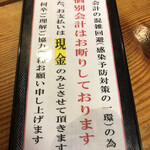 会計の混雑回避(感染予防対策の一環)の為
個別会計はお断りしております
お支払いは現金のみとさせて頂きます
何卒ご理解ご協力の程お願い申し上げます